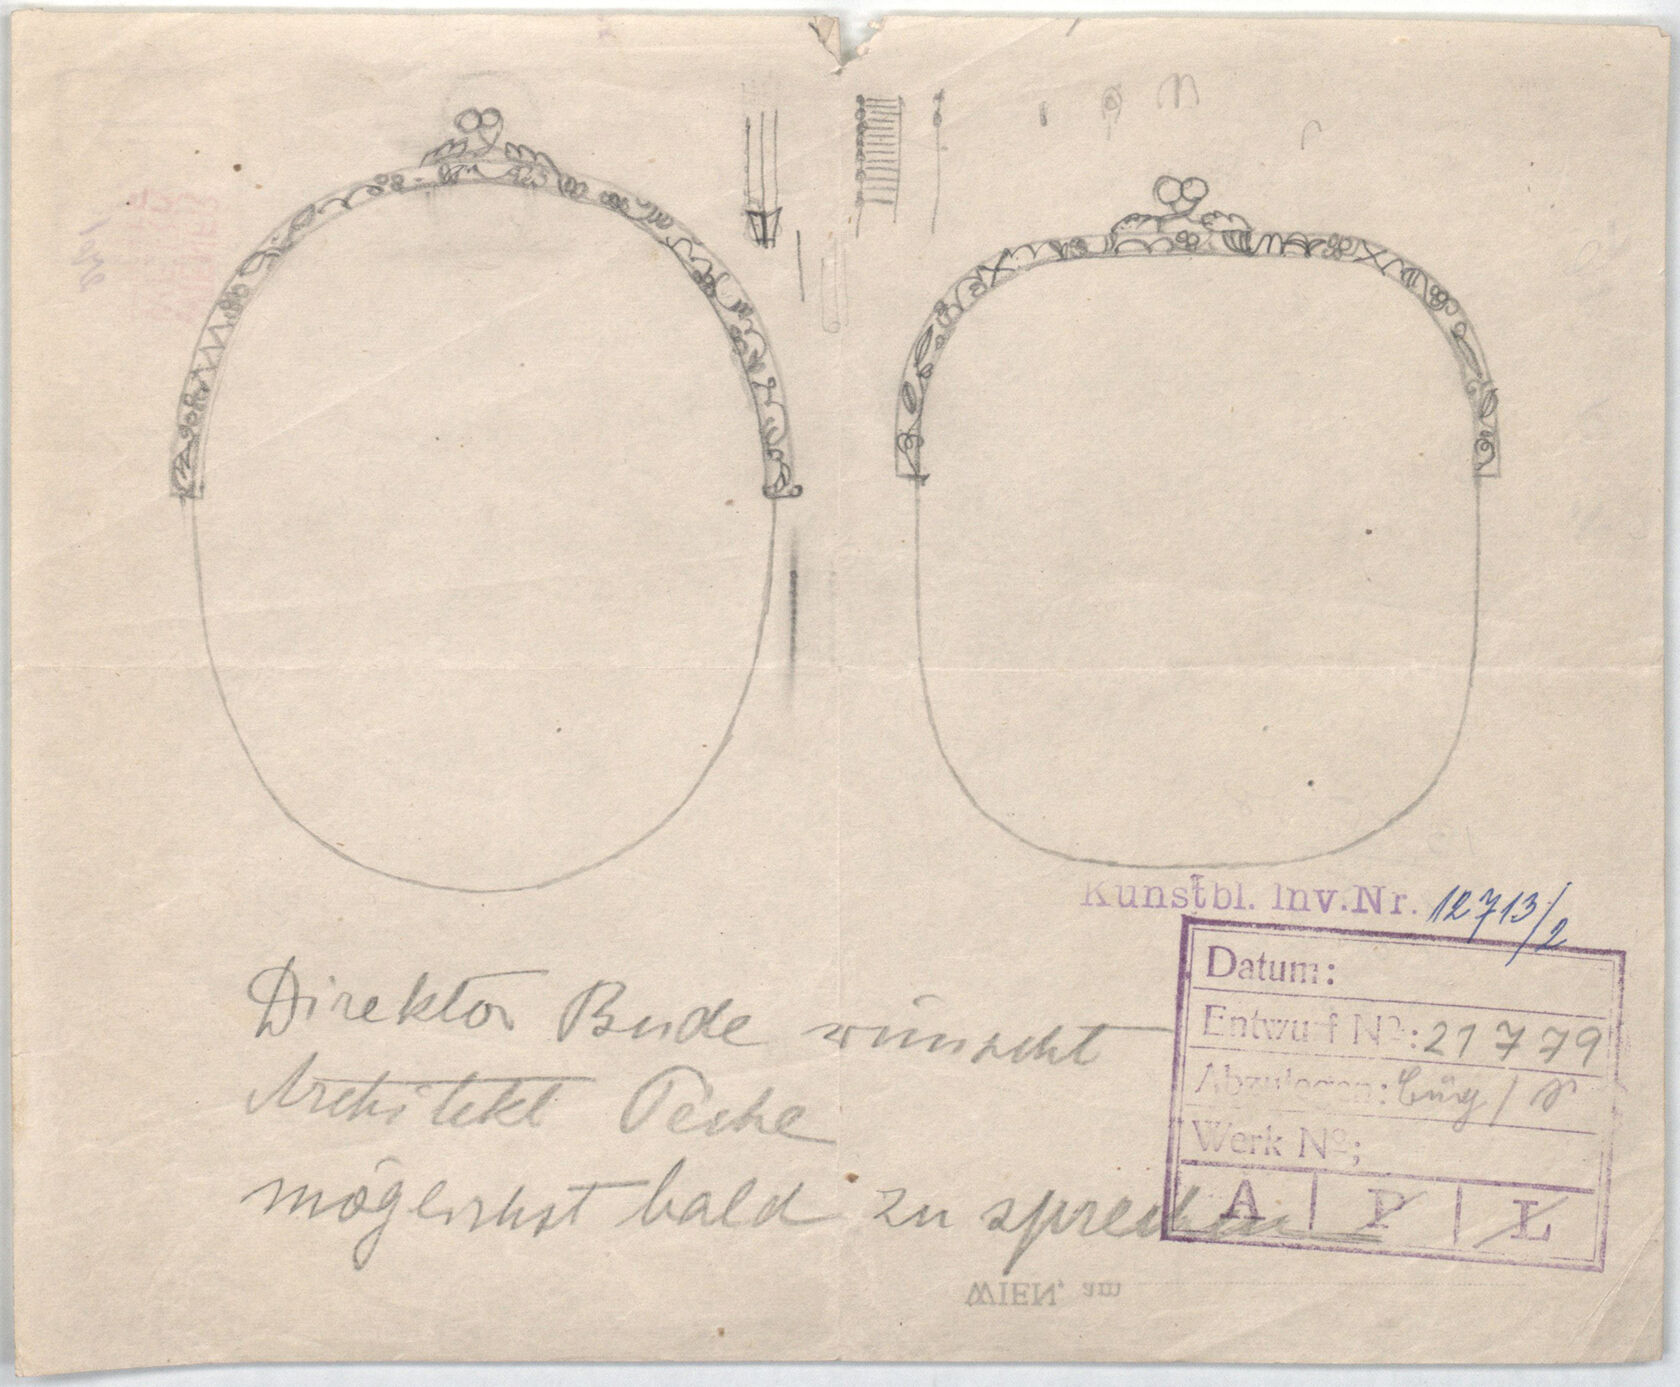 Kunstbl. Inv. Nr. 12713/2
Datum:
Entwurf Nº: 21779
Abzulegen:
Werk Nº;
A P L
Direktor Bude wünscht
Architekt Peche
möglichst bald zu sprechen
WIEN, am